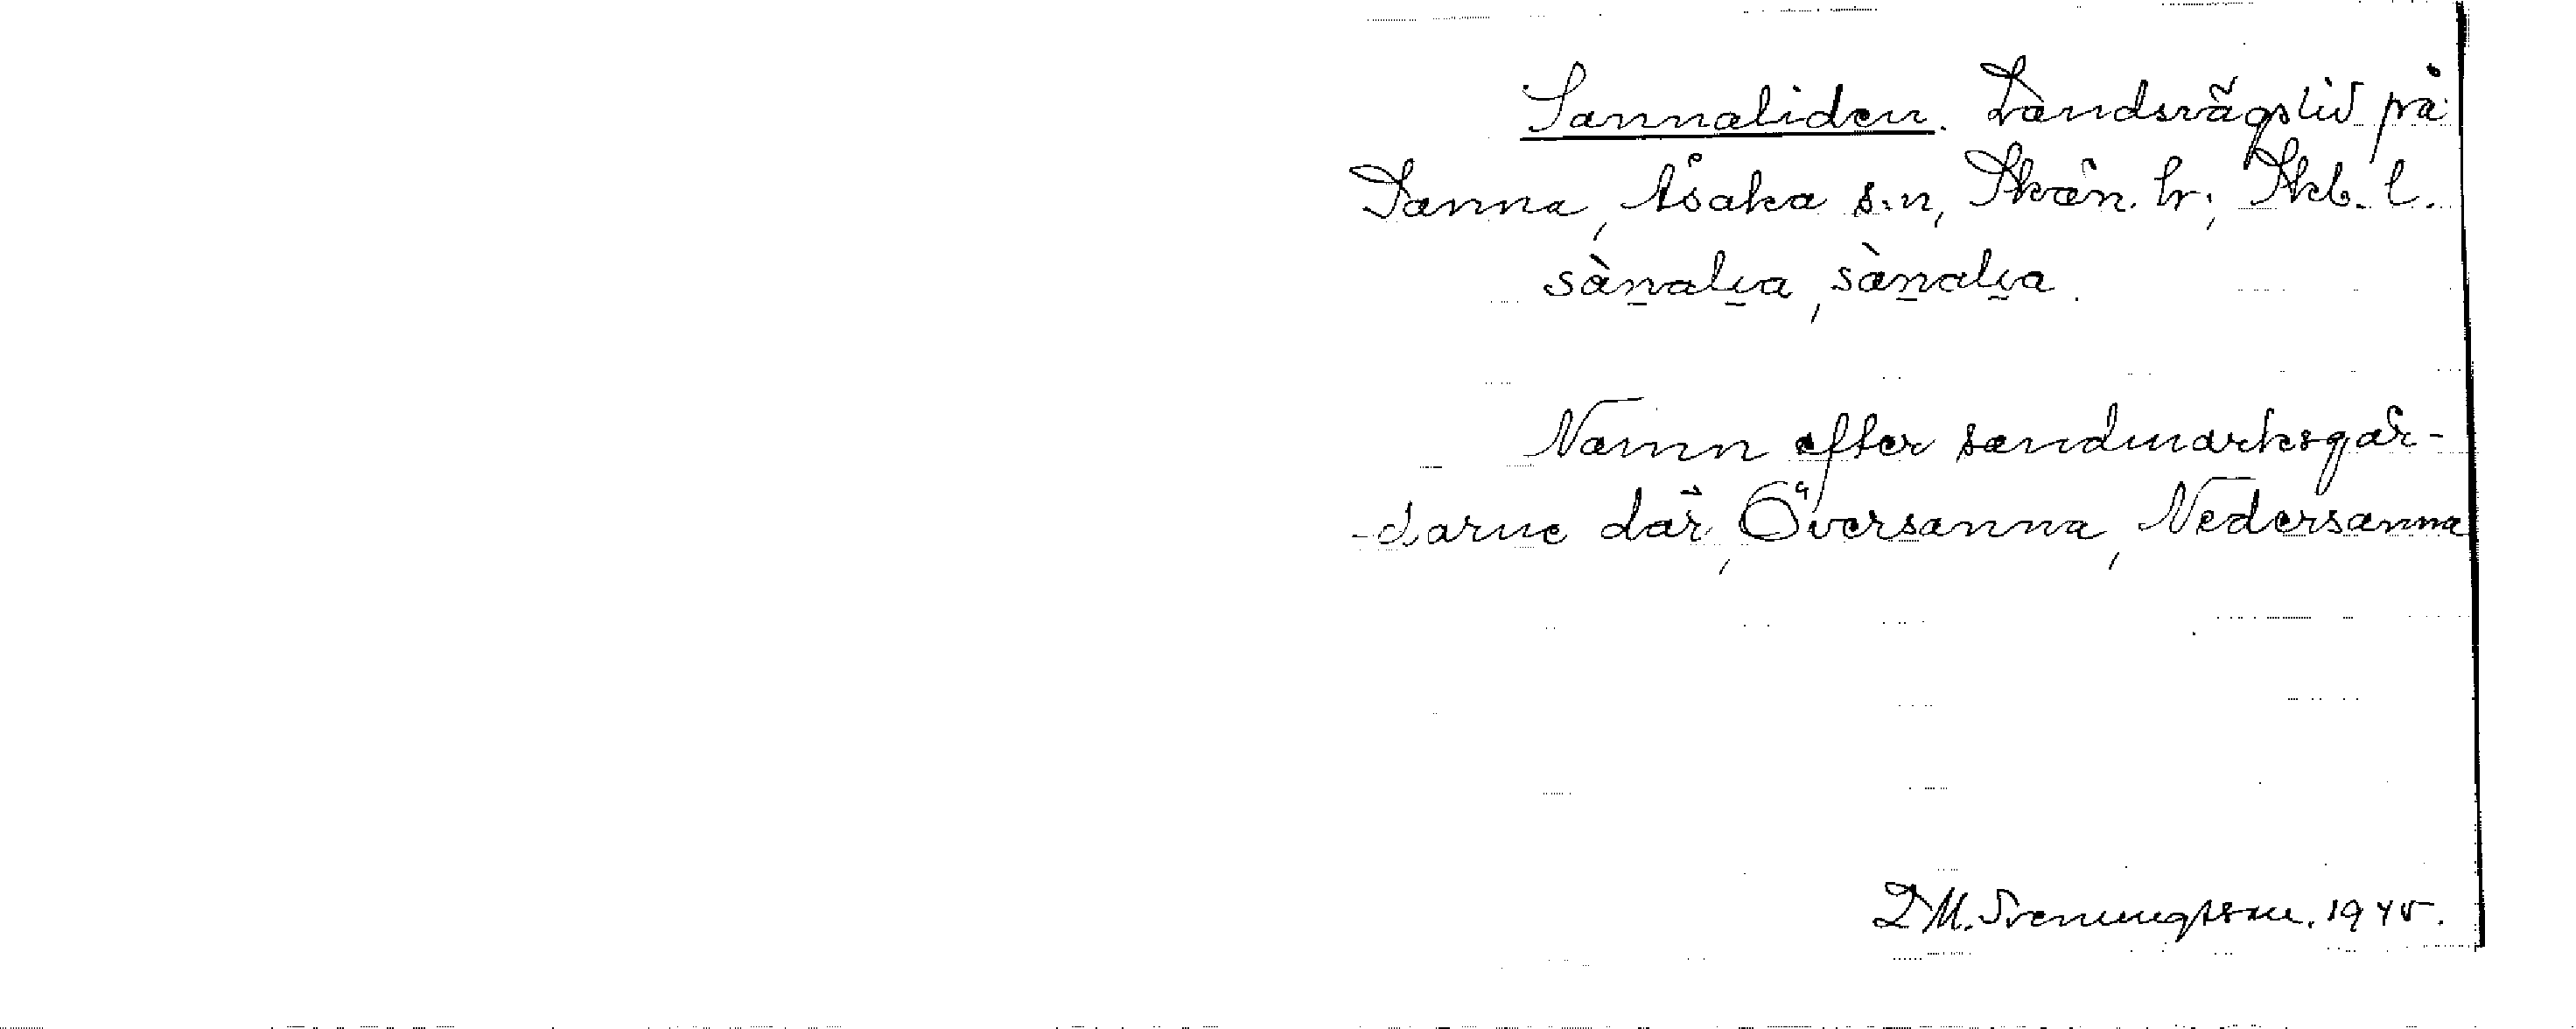 Sannaliden. Landsvägslid på
Sanna, Åsaka s:n, Skån. hr; Skb. l.
sànalıa, sànalıa.
Namn efter sandmarksgår-
-darne där, Översanna, Nedersanna
D M. Svenungsson. 1945.